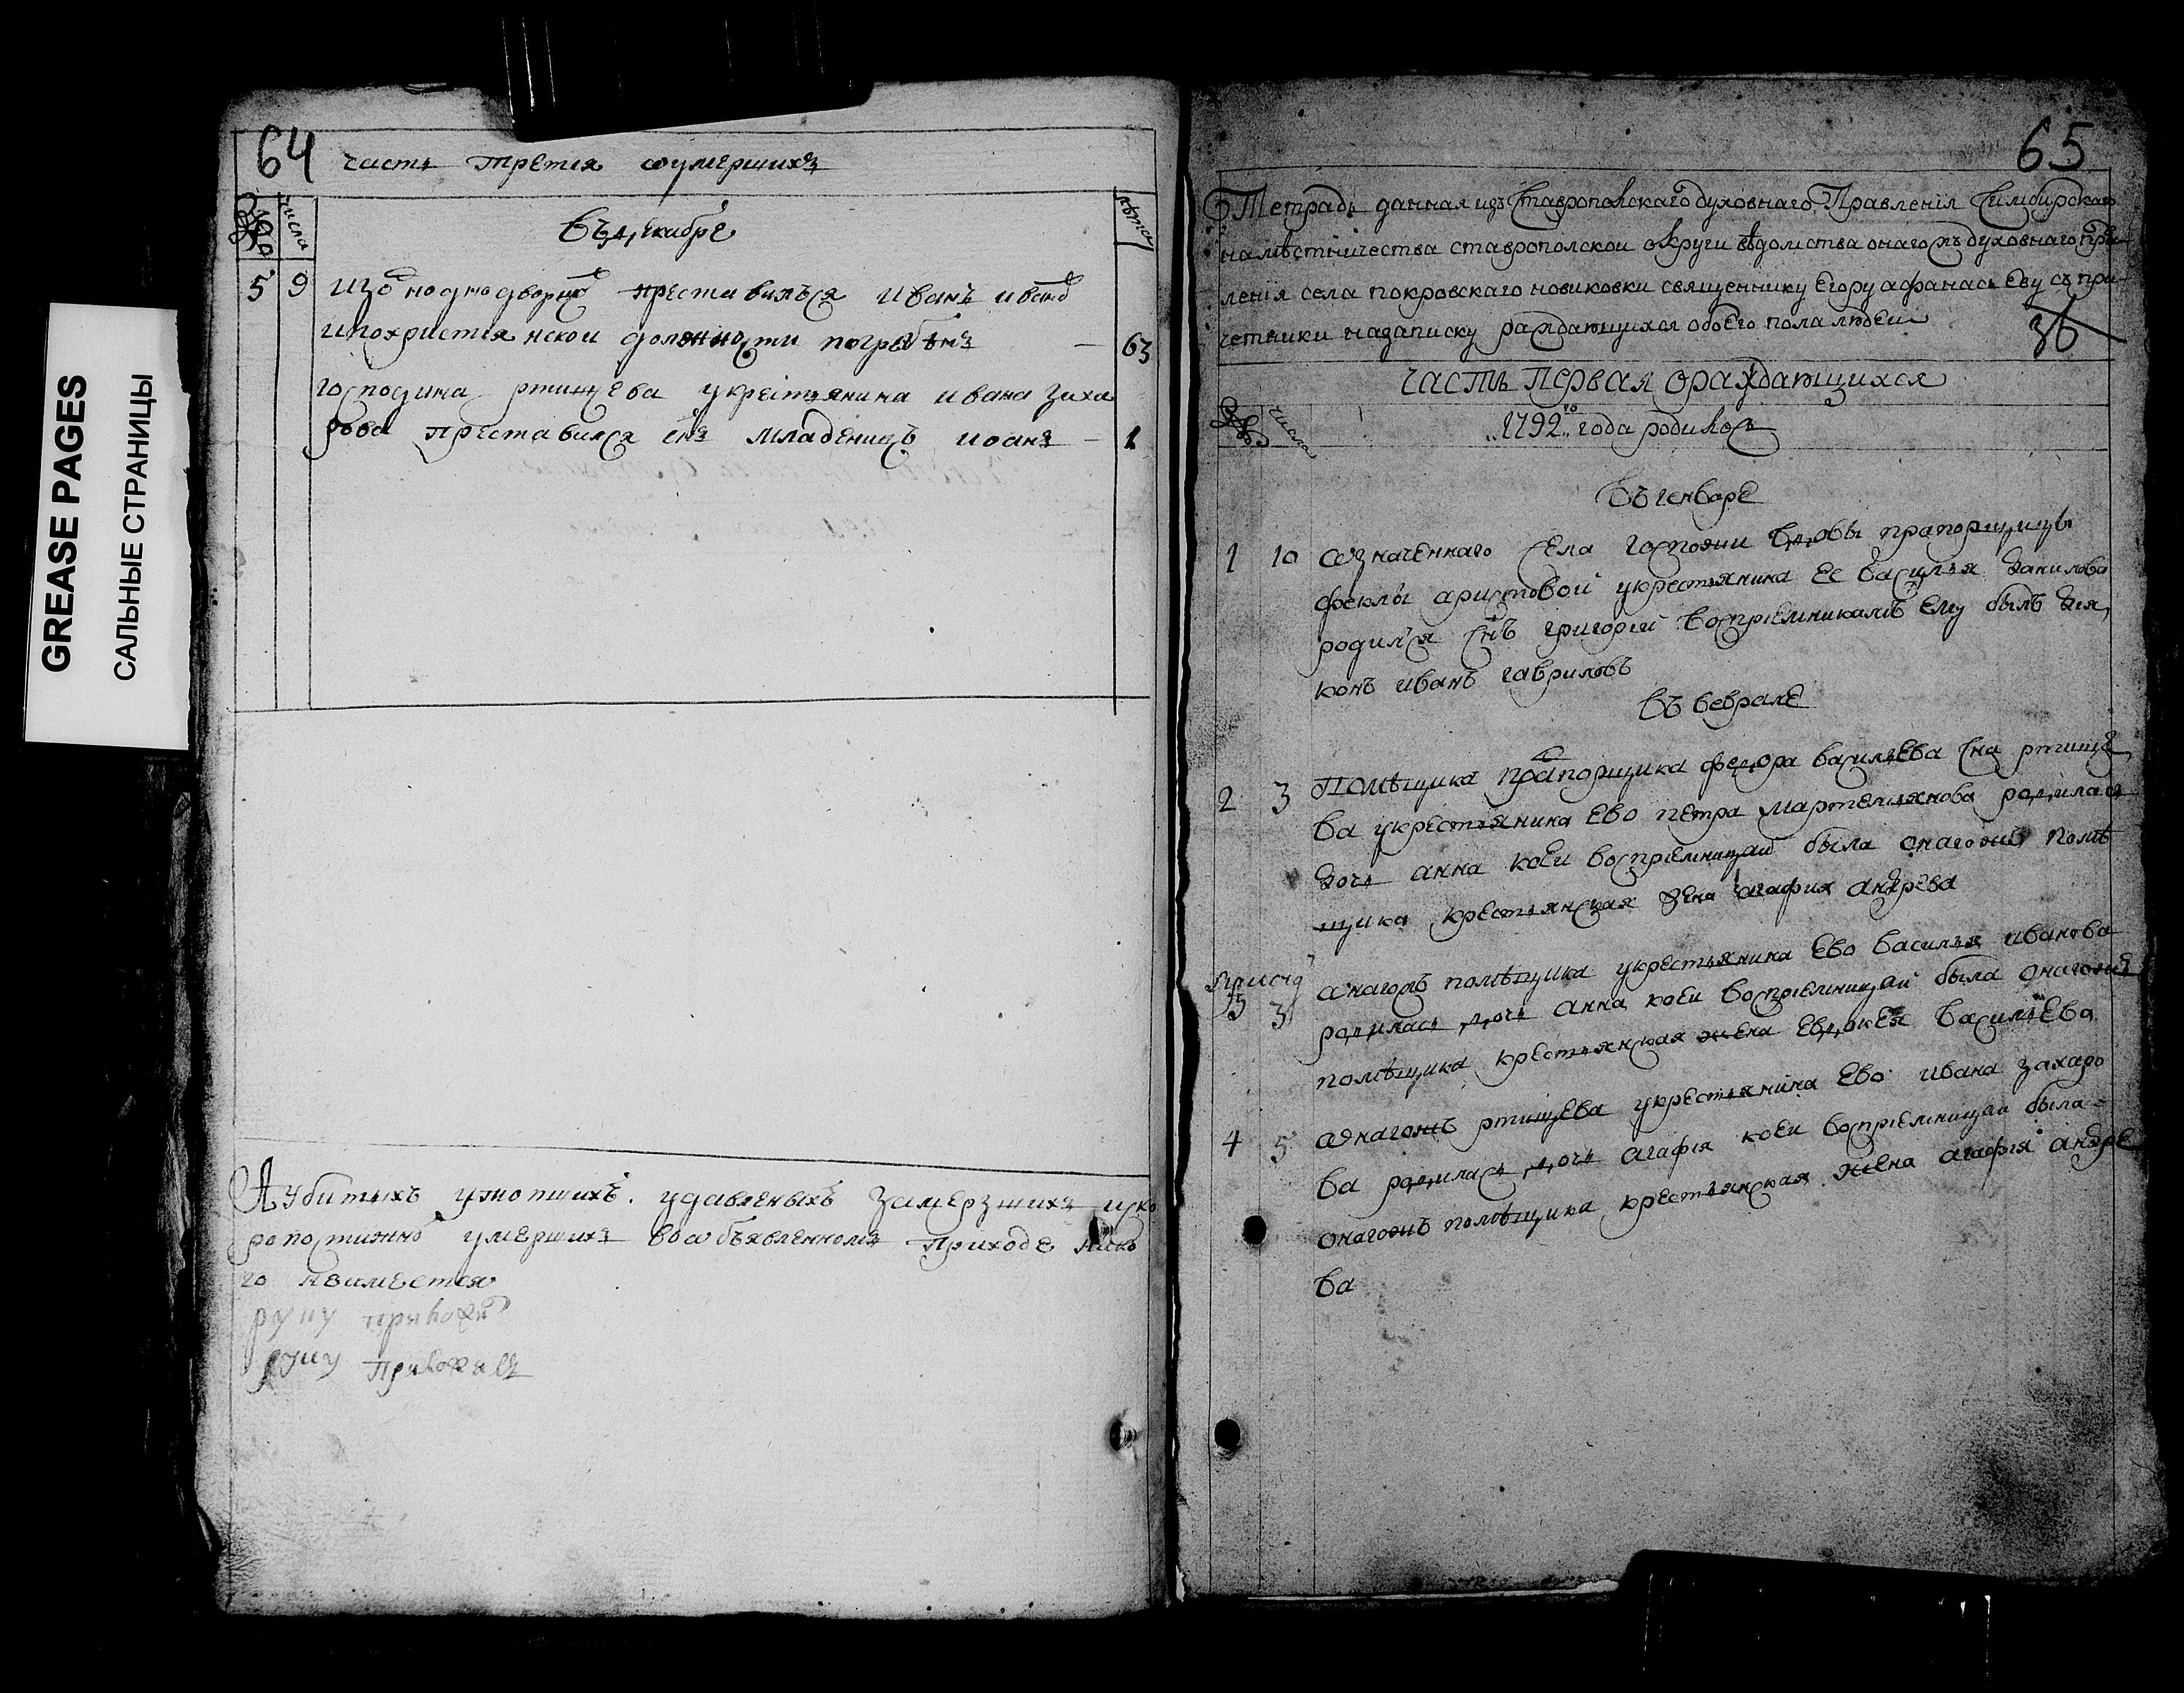 GREASE PAGES
САЛЬНЫЕ СТРАНИЦЫ
64
часть третья оумершихъ
числа
лѣта
въ декабре
5 9 изъ однодворцовъ преставился иванъ ивановъ
и по христианскои должности погребенъ — 63
господина ртищева у крестьянина ивана заха
рова преставился снъ младенецъ иоанъ — 1
А убитыхъ утопшихъ удавленыхъ замерзшихъ и ско
ропостижно умершихъ во объявленномъ приходе нико
го неимеется
руку
руку
65
Тетрадь данная изъ Ставропольскаго духовнаго Правления Симбирскаго
намѣстничества ставрополской округи вѣдомства онагожъ духовнаго прав
ления села покровскаго новиковки священнику Егору афанасьеву съ при
четники на записку раждающихся обоего пола людеи
36
часть первая о раждающихся
числа
1792го года родилось
въ генваре
1 10 означеннаго села госпожи вдовы прапорщицы
феклы аристовой у крестьянина ее василья данилова
родился снъ григореи восприемникамъ ему былъ дья
конъ иванъ гавриловъ
въ феврале
2 3 помѣщика прапорщика федора васильева сна ртище
ва у крестьянина ево петра мартемьянова родилась
дочь анна коеи восприемницаи была онагожъ помѣ
щика крестьянская жена агафия андрева
3 3 онагожъ помѣщика у крестьянина ево василья иванова
родилась дочь анна коеи восприемницаи была онагожъ
помѣщика крестьянская жена евдокея васильева
4 5 онагожъ ртищева у крестьянина ево ивана захаро
ва родилась дочь агафия коеи восприемницаи была
онагожъ помѣщика крестьянская жена агафия андре
ва